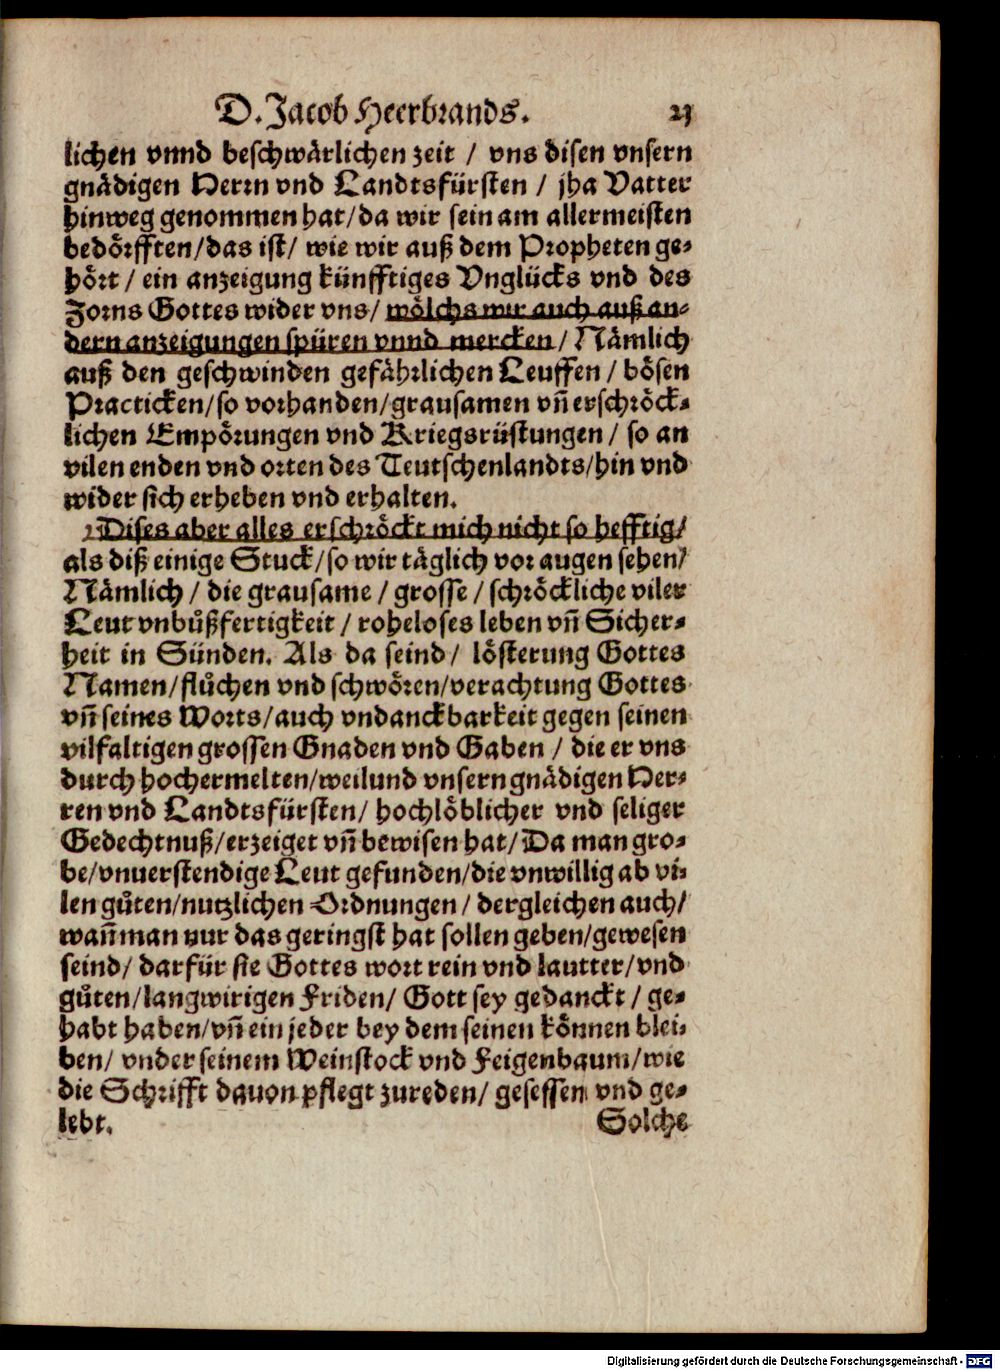 D. Jacob Heerbrands. 23
lichen vnnd beschwärlichen zeit / vns disen vnsern
gnädigen Herrn vnd Landtsfürsten / jha Vatter
hinweg genommen hat/da wir sein am allermeisten
bedörfften/das ist/ wie wir auß dem Propheten ge-
hört / ein anzeigung künfftiges Vnglücks vnd des
Zorns Gottes wider vns/ wölchs wir auch auß an-
dern anzeigungen spüren vnnd mercken / Nämlich
auß den geschwinden gefährlichen Leuffen / bösen
Practicken/so vorhanden/grausamen vñ erschröck-
lichen Empörungen vnd Kriegsrüstungen / so an
vilen enden vnd orten des Teutschenlandts/hin vnd
wider sich erheben vnd erhalten.
Dises aber alles erschröckt mich nicht so hefftig/
als diß einige Stuck/so wir täglich vor augen sehen/
Nämlich / die grausame / grosse / schröckliche viler
Leut vnbůßfertigkeit / roheloses leben vñ Sicher-
heit in Sünden. Als da seind / lösterung Gottes
Namen/flůchen vnd schwören/verachtung Gottes
vñ seines Worts/auch vndanckbarkeit gegen seinen
vilfaltigen grossen Gnaden vnd Gaben / die er vns
durch hochermelten/weilund vnsern gnädigen Her-
ren vnd Landtsfürsten/ hochlöblicher vnd seliger
Gedechtnuß/erzeiget vñ bewisen hat/Da man gro-
be/vnuerstendige Leut gefunden/die vnwillig ab vi-
len gůten/nutzlichen Ordnungen / dergleichen auch/
wañ man nur das geringst hat sollen geben/gewesen
seind/ darfür sie Gottes wort rein vnd lautter/vnd
gůten/langwirigen Friden/ Gott sey gedanckt / ge-
habt haben/vñ ein jeder bey dem seinen können blei-
ben/ vnder seinem Weinstock vnd Feigenbaum/wie
die Schrifft dauon pflegt zureden/ gesessen vnd ge-
lebt. Solche
Digitalisierung gefördert durch die Deutsche Forschungsgemeinschaft - DFG